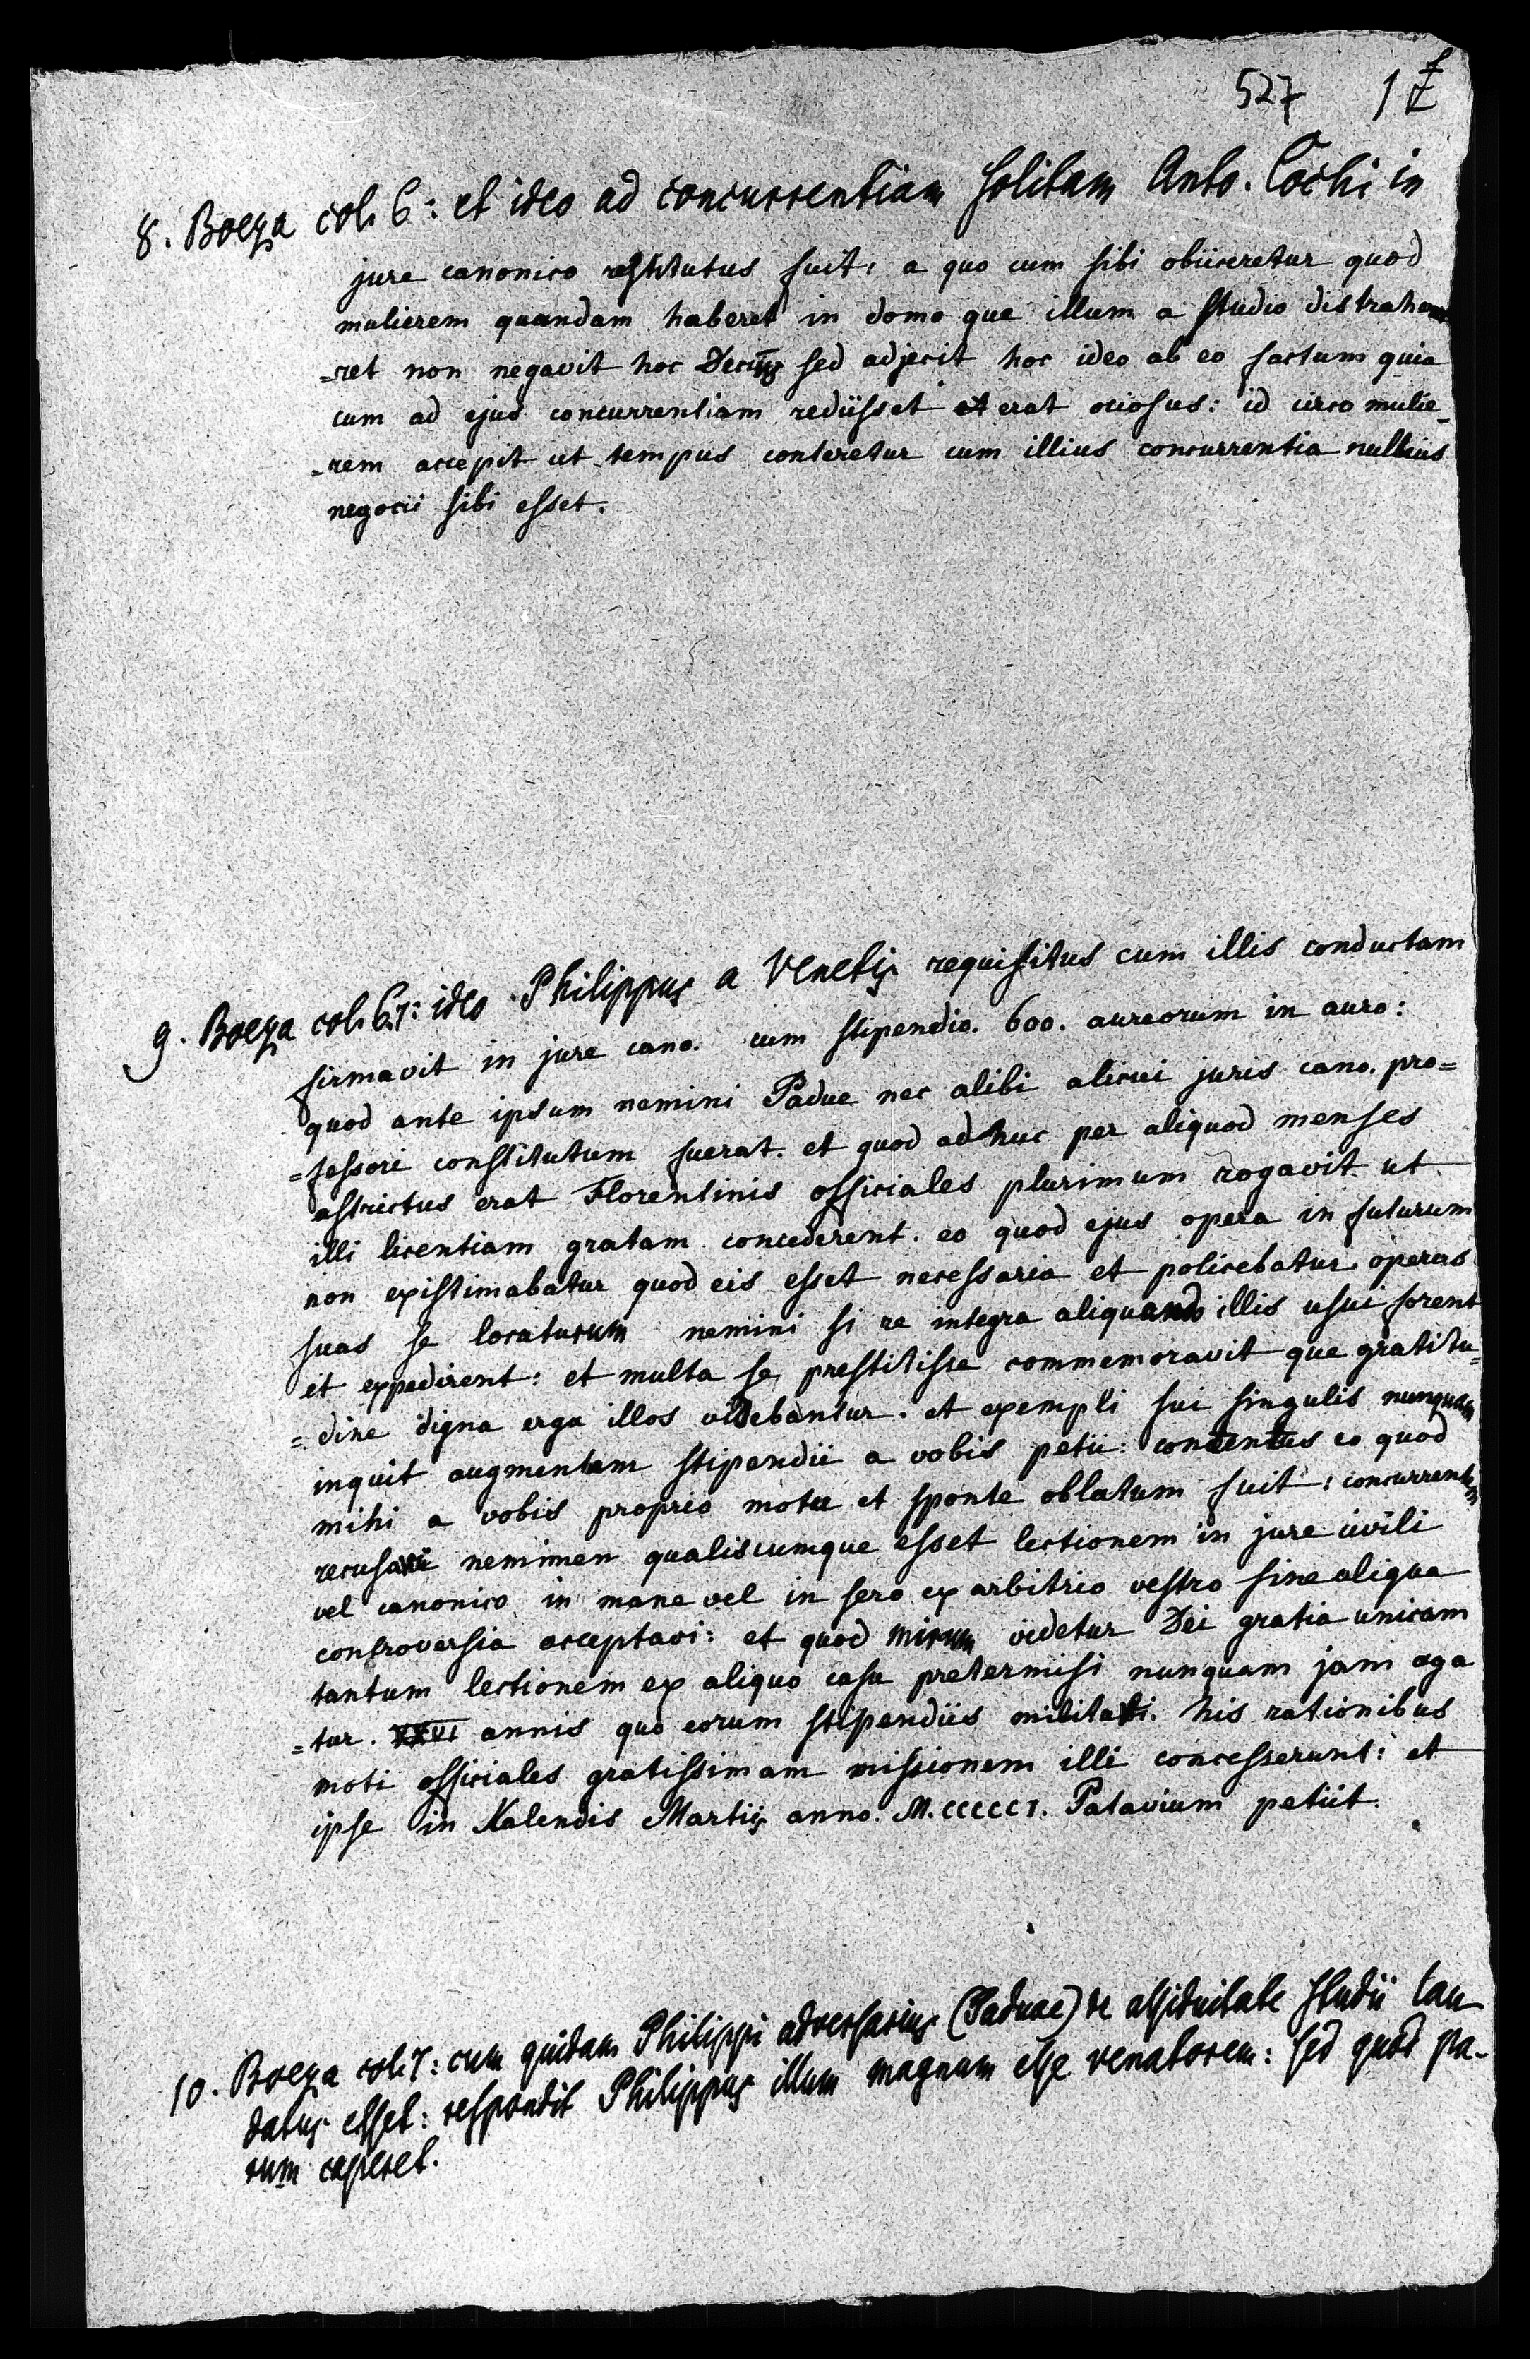 527
8. Boeza col. 6: et ideo ad concurrentiam solitam Anto. Cochi in
jure canonico restitutus fuit: a quo cum sibi obiiceretur quod
mulierem quandam haberet in domo que illum a studio distrahe
=ret non negavit hoc Decius sed adjecit hoc ideo ab eo factum quia
cum ad ejus concurrentiam rediisset et erat ociosus: id circo mulie_
_rem accepit ut tempus contereretur cum illius concurrentia nullius
negocii sibi esset.
9. Boeza col. 6.7: ideo Philippus a Venetijs requisitus cum illis conductam
firmavit in jure cano. cum stipendio. 600. aureorum in auro:
quod ante ipsum nemini Padue nec alibi alicui juris cano. pro=
=fessori constitutum fuerat. et quod adhuc per aliquod menses
astrictus erat Florentinis officiales plurimum rogavit ut
illi licentiam gratam concederent. eo quod ejus opera in futurum
non existimabatur quod eis esset necessaria et policebatur operas
suas se locaturum nemini si re integra aliquando illis usui forent
et expedirent: et multa se prestitisse commemoravit que gratitu=
=dine digna erga illos videbantur. et exempli sui singulis nunquam
inquit augmentum stipendii a vobis petii: contentus eo quod
mihi a vobis proprio motu et sponte oblatum fuit: concurrentem
recusavi neminem qualiscumque esset lectionem in jure civili
vel canonico in mane vel in sero ex arbitrio vestro sine aliqua
controversia acceptavi: et quod mirum videtur Dei gratia unicam
tantum lectionem ex aliquo casu pretermisi nunquam jam aga
=tur. XXVI annis quo eorum stipendiis militavi. his rationibus
moti officiales gratissimam missionem illi concesserunt: et
ipse in Kalendis Martijs anno. M.CCCCCI. Patavium petiit.
10. Boeza col. 7: cum quidam Philippi adversarius (Paduae) de assiduitate studii lau-
datus esset: respondit Philippus illum magnum esse venatorem: sed quod pa-
rum caperet.